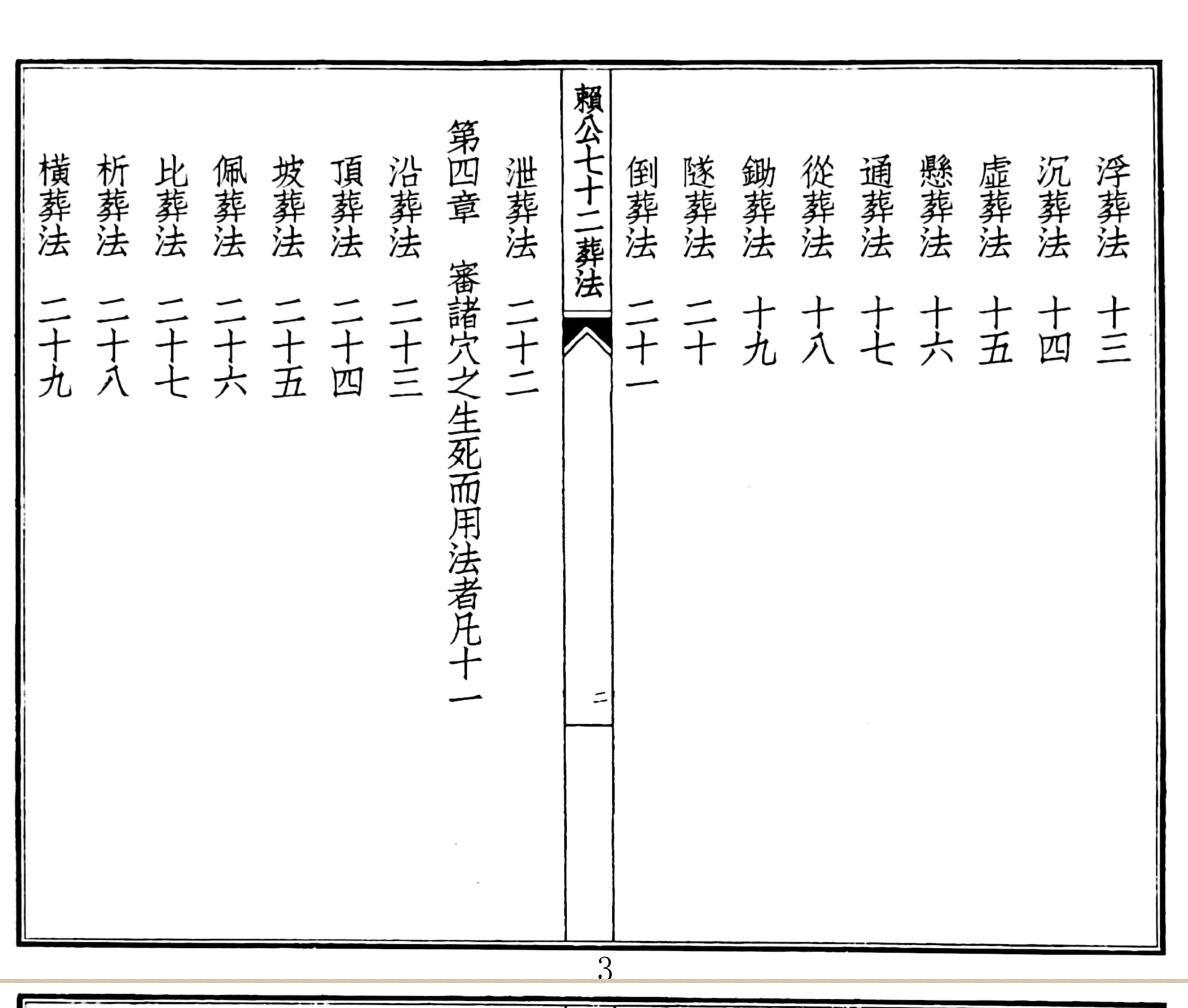 浮葬法 十三
沉葬法 十四
虛葬法 十五
懸葬法 十六
通葬法 十七
從葬法 十八
鋤葬法 十九
隧葬法 二十
倒葬法 二十一
賴公七十二葬法
二
泄葬法 二十二
第四章 審諸穴之生死而用法者凡十一
沿葬法 二十三
頂葬法 二十四
坡葬法 二十五
佩葬法 二十六
比葬法 二十七
析葬法 二十八
橫葬法 二十九
3